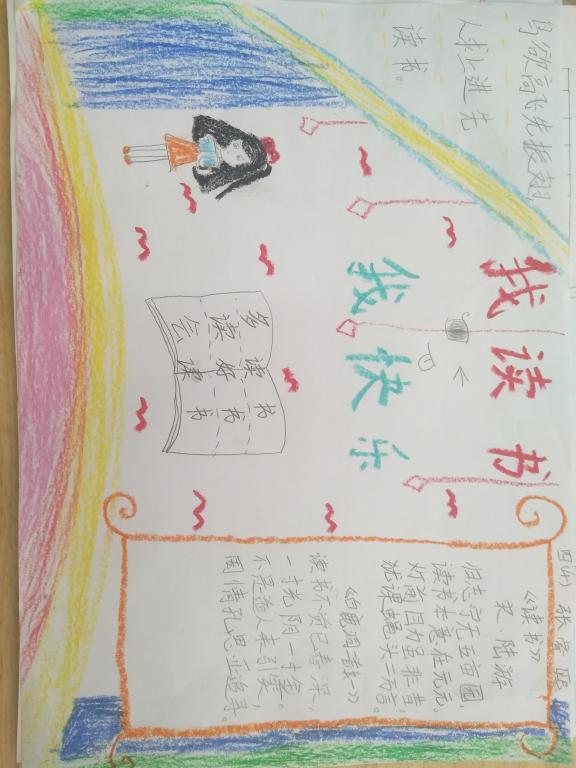 鸟欲高飞先振翅,
人求上进先
读书。
我读书
我快乐
多读书
读好书
会读书
《读书》
宋·陆游
归志宁无五亩园,
读书本意在元元。
灯前目力虽非昔,
犹课蝇头二万言。
《白鹿洞二首》
读书不觉已春深,
一寸光阴一寸金。
不是道人来引笑,
周情孔思正追寻。